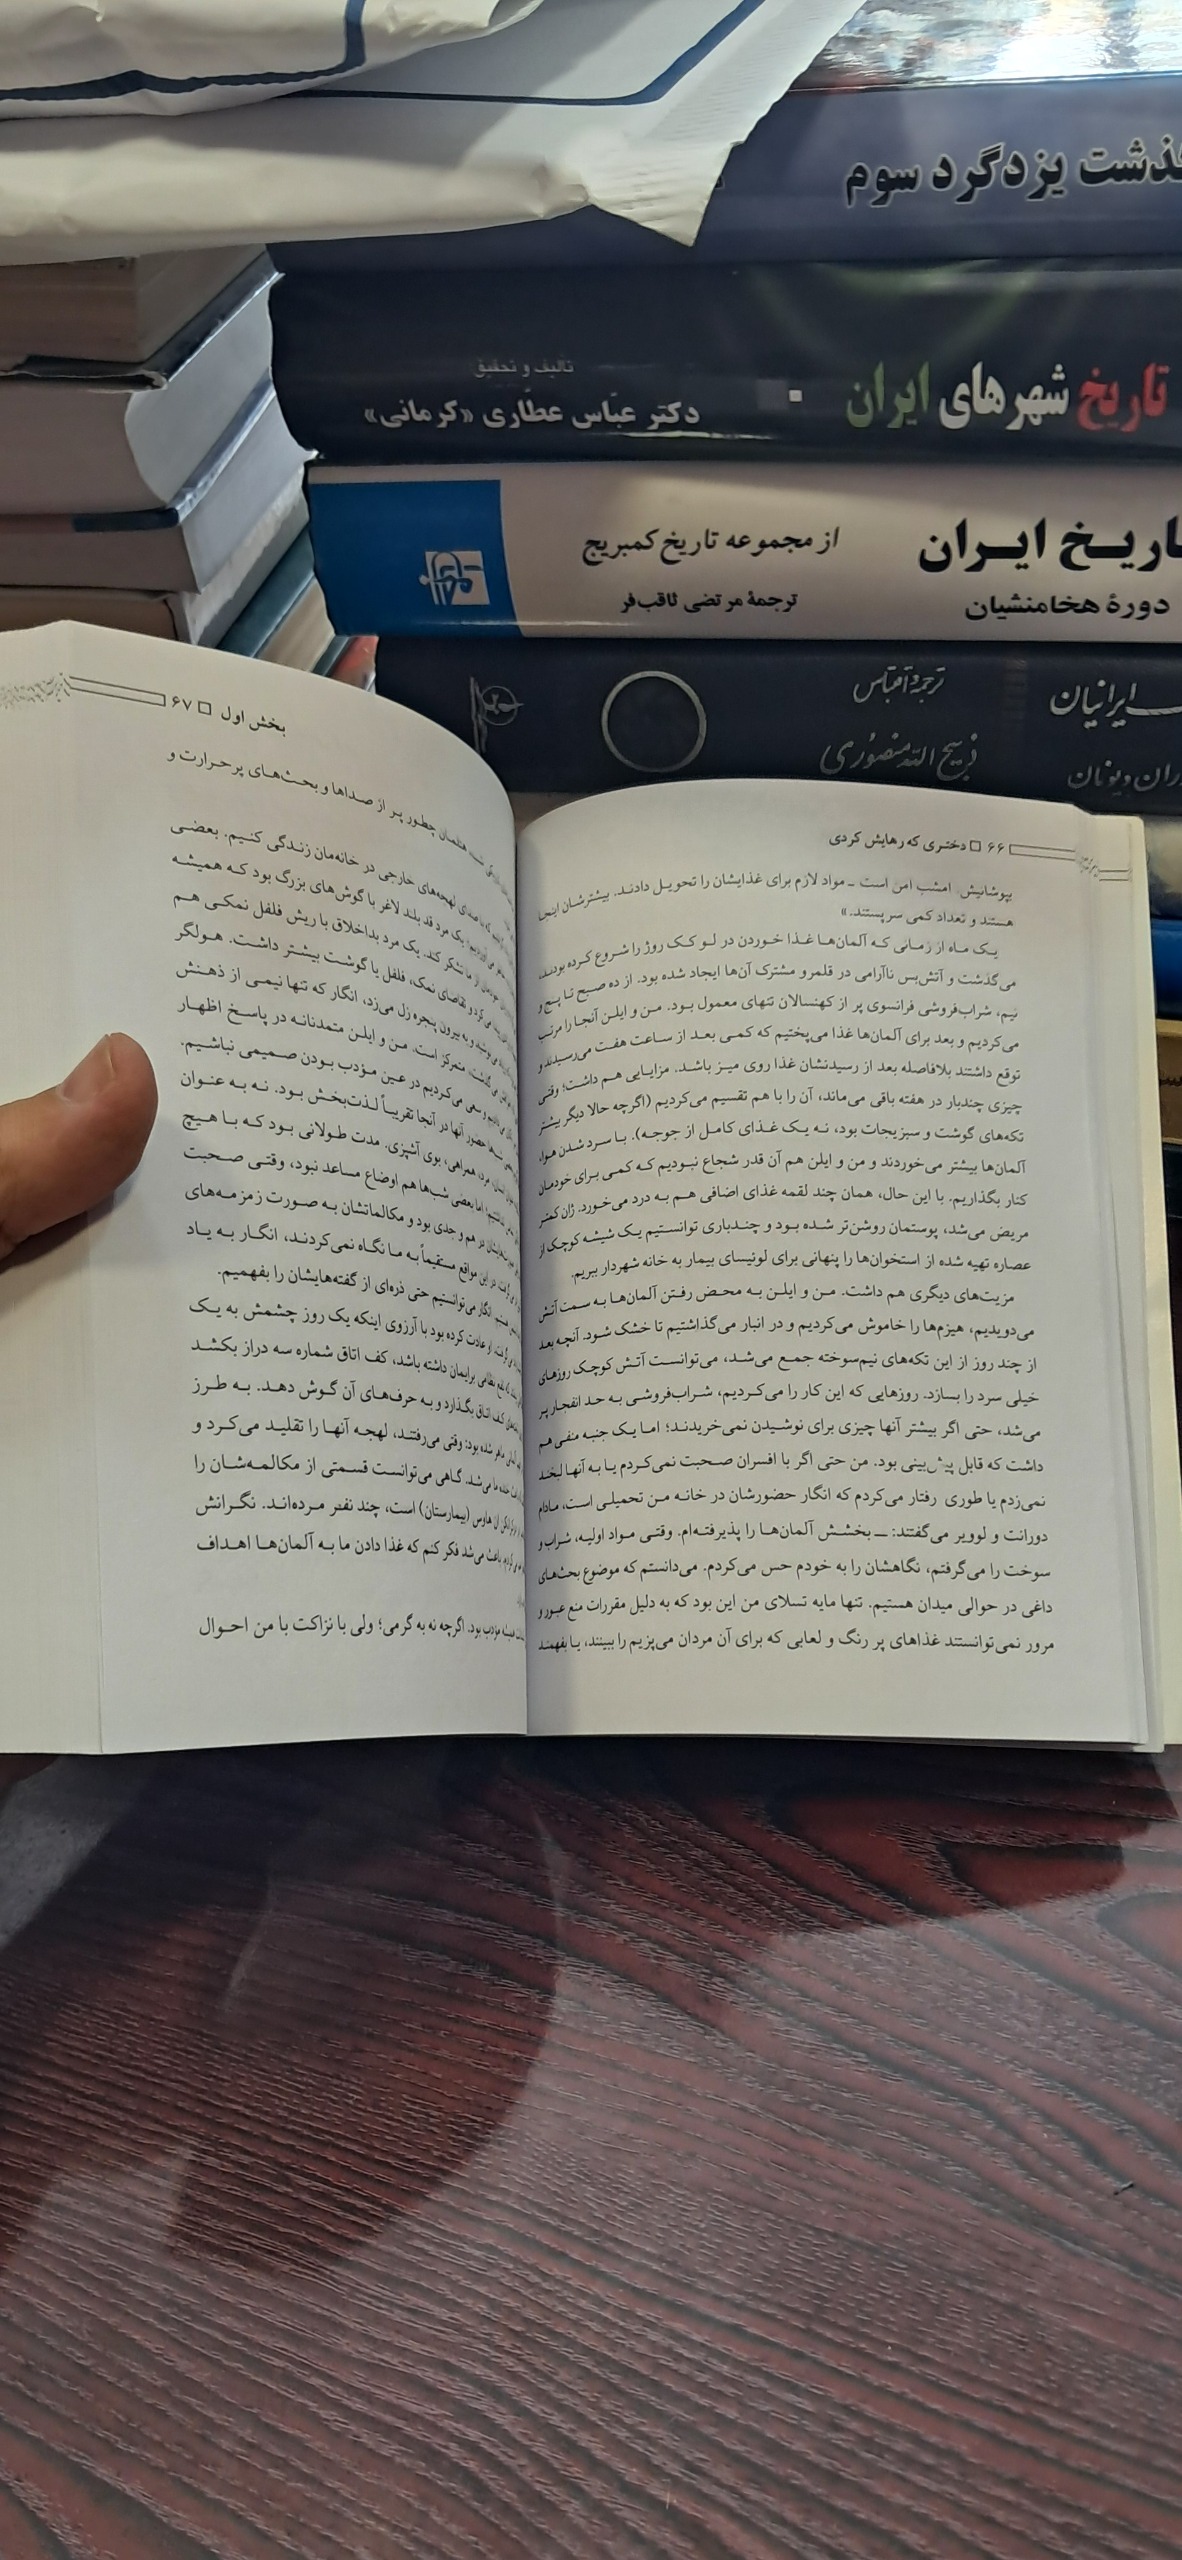 گذشت یزدگرد سوم
تاریخ شهرهای ایران
تالیف و تحقیق
دکتر عبّاس عطّاری «کرمانی»
تاریـخ ایـران
دورهٔ هخامنشیان
از مجموعه تاریخ کمبریج
ترجمهٔ مرتضی ثاقب‌فر
ایرانیان
ویونان
ترجمه و اقتباس
ذبیح الله منصوری
۶۶ □ دختری که رهایش کردی
بپوشانیش. امشب امن است ـ مواد لازم برای غذایشان را تحویل دادند. بیشترشان اینجا
هستند و تعداد کمی سر پستند.»
یک ماه از زمانی که آلمان‌ها غذا خوردن در لو کک روژ را شروع کرده بودند،
می‌گذشت و آتش‌بس ناآرامی در قلمرو مشترک آن‌ها ایجاد شده بود. از ده صبح تا پنج و
نیم، شراب‌فروشی فرانسوی پر از کهنسالان تنهای معمول بود. من و ایلن آنجا را مرتب
می‌کردیم و بعد برای آلمان‌ها غذا می‌پختیم که کمی بعد از ساعت هفت می‌رسیدند و
توقع داشتند بلافاصله بعد از رسیدنشان غذا روی میز باشد. مزایایی هم داشت؛ وقتی
چیزی چندبار در هفته باقی می‌ماند، آن را با هم تقسیم می‌کردیم (اگرچه حالا دیگر بیشتر
تکه‌های گوشت و سبزیجات بود، نه یک غذای کامل از جوجه). با سرد شدن هوا،
آلمان‌ها بیشتر می‌خوردند و من و ایلن هم آن قدر شجاع نبودیم که کمی برای خودمان
کنار بگذاریم. با این حال، همان چند لقمه غذای اضافی هم به درد می‌خورد. ژان کمتر
مریض می‌شد، پوستمان روشن‌تر شده بود و چندباری توانستیم یک شیشه کوچک از
عصاره تهیه شده از استخوان‌ها را پنهانی برای لوئیسای بیمار به خانه شهردار ببریم.
مزیت‌های دیگری هم داشت. من و ایلن به محض رفتن آلمان‌ها به سمت آتش
می‌دویدیم، هیزم‌ها را خاموش می‌کردیم و در انبار می‌گذاشتیم تا خشک شود. آنچه بعد
از چند روز از این تکه‌های نیم‌سوخته جمع می‌شد، می‌توانست آتش کوچک روزهای
خیلی سرد را بسازد. روزهایی که این کار را می‌کردیم، شراب‌فروشی به حد انفجار پر
می‌شد، حتی اگر بیشتر آنها چیزی برای نوشیدن نمی‌خریدند؛ اما یک جنبه منفی هم
داشت که قابل پیش‌بینی بود. من حتی اگر با افسران صحبت نمی‌کردم یا به آنها لبخند
نمی‌زدم یا طوری رفتار می‌کردم که انگار حضورشان در خانه من تحمیلی است، مادام
دورانت و لوویر می‌گفتند: ـــ بخشش آلمان‌ها را پذیرفته‌ام. وقتی مواد اولیه، شراب و
سوخت را می‌گرفتم، نگاهشان را به خودم حس می‌کردم. می‌دانستم که موضوع بحث‌های
داغی در حوالی میدان هستیم. تنها مایه تسلای من این بود که به دلیل مقررات منع عبور و
مرور نمی‌توانستند غذاهای پر رنگ و لعابی که برای آن مردان می‌پزیم را ببینند، یا بفهمند
بخش اول □ ۶۷
هتلمان چطور پر از صداها و بحث‌های پرحرارت و
لهجه‌های خارجی در خانه‌مان زندگی کنیم. بعضی
یک مرد قد بلند لاغر با گوش‌های بزرگ بود که همیشه
از ما تشکر کند. یک مرد بداخلاق با ریش فلفل نمکی هم
و تقاضای نمک، فلفل یا گوشت بیشتر داشت. هولگر
و به بیرون پنجره زل می‌زد، انگار که تنها نیمی از ذهنش
متمرکز است. من و ایلن متمدنانه در پاسخ اظهار
و سعی می‌کردیم در عین مؤدب بودن صمیمی نباشیم.
حضور آنها در آنجا تقریباً لذت‌بخش بود. نه به عنوان
همراهی، بوی آشپزی. مدت طولانی بود که با هیچ
اما بعضی شب‌ها هم اوضاع مساعد نبود، وقتی صحبت
در هم و جدی بود و مکالماتشان به صورت زمزمه‌های
در این مواقع مستقیماً به ما نگاه نمی‌کردند، انگار به یاد
انگار می‌توانستیم حتی ذره‌ای از گفته‌هایشان را بفهمیم.
عادت کرده بود با آرزوی اینکه یک روز چشمش به یک
نظامی برایمان داشته باشد، کف اتاق شماره سه دراز بکشد
کف اتاق بگذارد و به حرف‌های آن گوش دهد. به طرز
ماهر شده بود: وقتی می‌رفتند، لهجه آنها را تقلید می‌کرد و
خنده ما می‌شد. گاهی می‌توانست قسمتی از مکالمه‌شان را
هاوس (بیمارستان) است، چند نفر مرده‌اند. نگرانش
باعث می‌شد فکر کنم که غذا دادن ما به آلمان‌ها اهداف
همیشه مؤدب بود. اگرچه نه به گرمی؛ ولی با نزاکت با من احوال